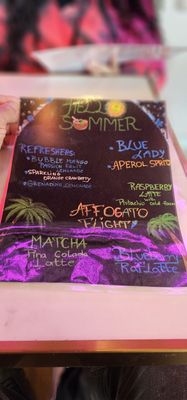 HELLO
SUMMER
REFRESHERS:
BUBBLE MANGO
PASSION FRUIT
LEMONADE
SPARKLING
ORANGE CRANBERRY
GRENADINE LEMONADE
BLUE
LADY
APEROL SPRITZ
RASPBERRY
LATTE
with
Pistachio cold foam
AFFOGATO
FLIGHT
MATCHA
Pina Colada
Latte
Blueberry
Raf Latte